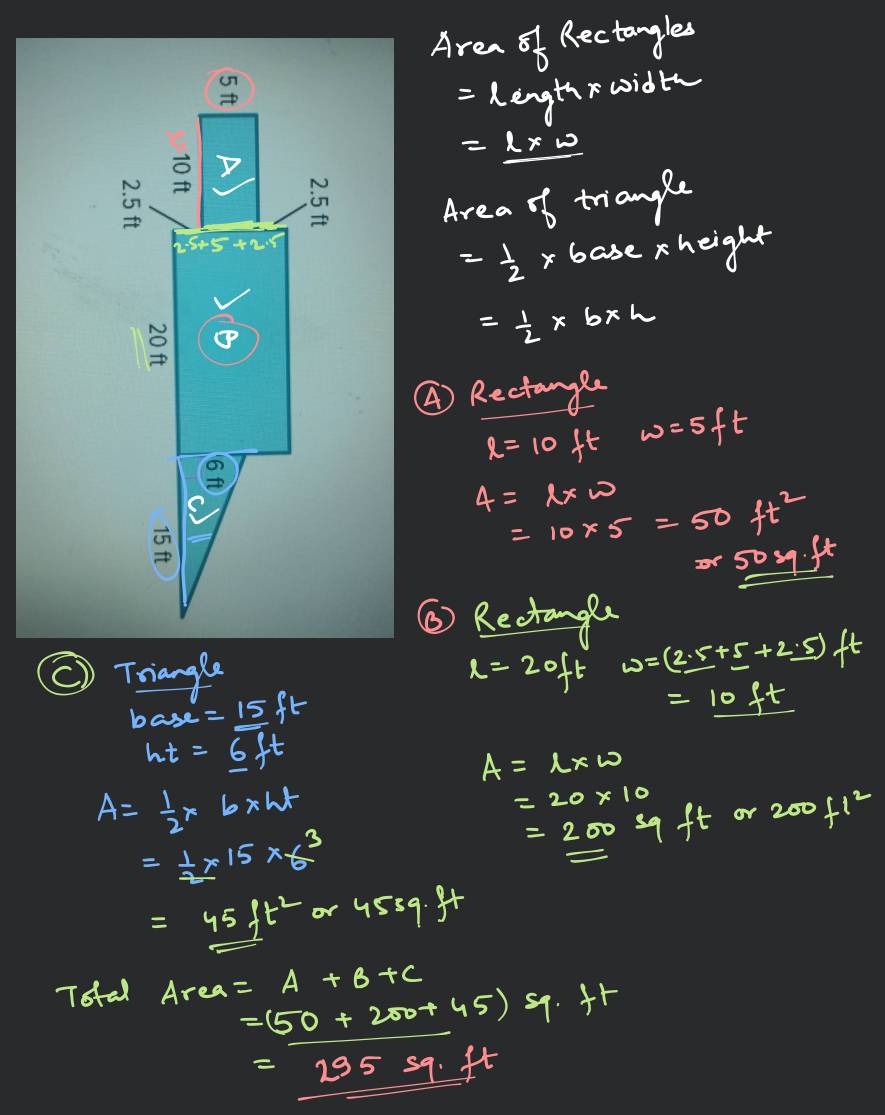 Area of Rectangles
= length × width
= l × w
Area of triangle
= 1/2 × base × height
= 1/2 × b × h
5 ft
A)
l=10 ft
2.5 ft
2.5 ft
2.5+5+2.5
B
20 ft
6 ft
C)
15 ft
A Rectangle
l = 10 ft w = 5 ft
A = l × w
= 10 × 5 = 50 ft²
or 50 sq. ft
B Rectangle
l = 20 ft w = (2.5+5+2.5) ft
= 10 ft
A = l × w
= 20 × 10
= 200 sq ft or 200 ft²
C Triangle
base = 15 ft
ht = 6 ft
A = 1/2 × b × ht
= 1/2 × 15 × 6 3
= 45 ft² or 45 sq. ft
Total Area = A + B + C
= (50 + 200 + 45) sq. ft
= 295 sq. ft